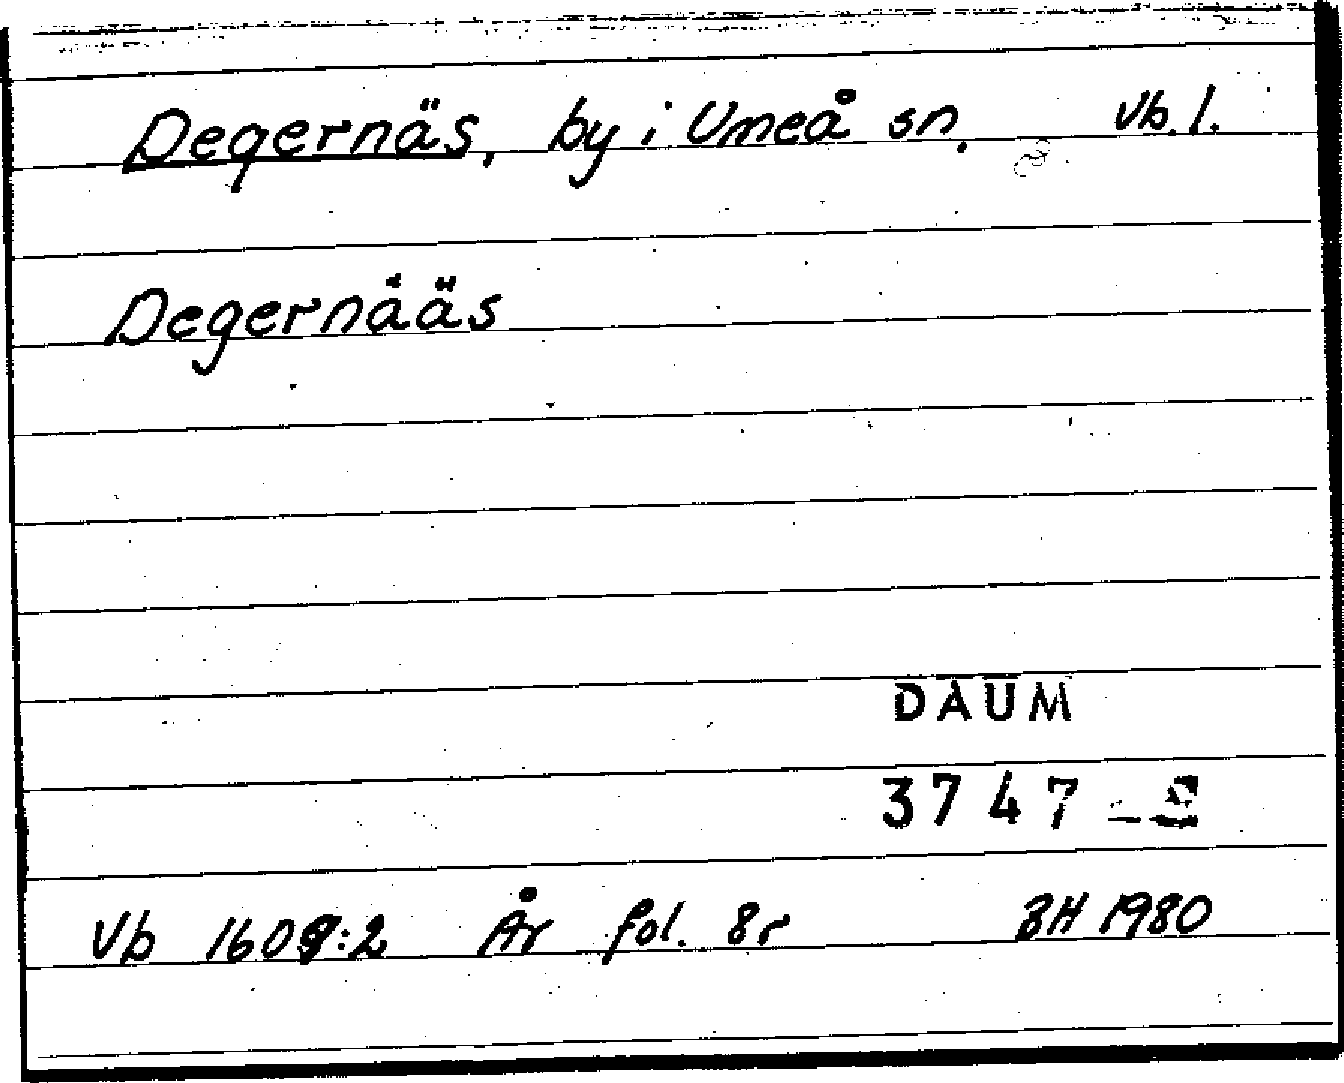 Degernäs, by i Umeå sn. Vb. l.
Degernååäs
DAUM
3747
Vb 1609:2 År fol. 8r BH 1980